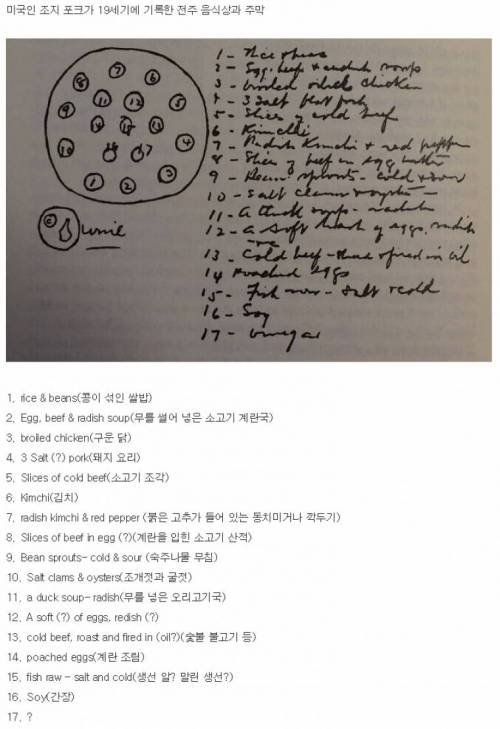 미국인 조지 포크가 19세기에 기록한 전주 음식상과 주막
1 - Rice & beans
2 - Egg, beef & radish soup
3 - broiled chicken
4 - 3 Salt pork
5 - Slices of cold beef
6 - Kimchi
7 - Radish Kimchi & red pepper
8 - Slices of beef in egg
9 - Bean sprouts - cold & sour
10 - Salt clams & oysters -
11 - A duck soup - radish
12 - A soft of eggs, radish
13 - Cold beef - in oil
14 Poached Eggs
15 - Fish - salt & cold
16 - Soy
17 - vinegar
wine
1. rice & beans(콩이 섞인 쌀밥)
2. Egg, beef & radish soup(무를 썰어 넣은 소고기 계란국)
3. broiled chicken(구운 닭)
4. 3 Salt (?) pork(돼지 요리)
5. Slices of cold beef(소고기 조각)
6. Kimchi(김치)
7. radish kimchi & red pepper (붉은 고추가 들어 있는 동치미거나 깍두기)
8. Slices of beef in egg (?)(계란을 입힌 소고기 산적)
9. Bean sprouts- cold & sour (숙주나물 무침)
10. Salt clams & oysters(조개젓과 굴젓)
11. a duck soup- radish(무를 넣은 오리고기국)
12. A soft (?) of eggs, redish (?)
13. cold beef, roast and fired in (oil?)(숯불 불고기 등)
14. poached eggs(계란 조림)
15. fish raw - salt and cold(생선 알? 말린 생선?)
16. Soy(간장)
17. ?